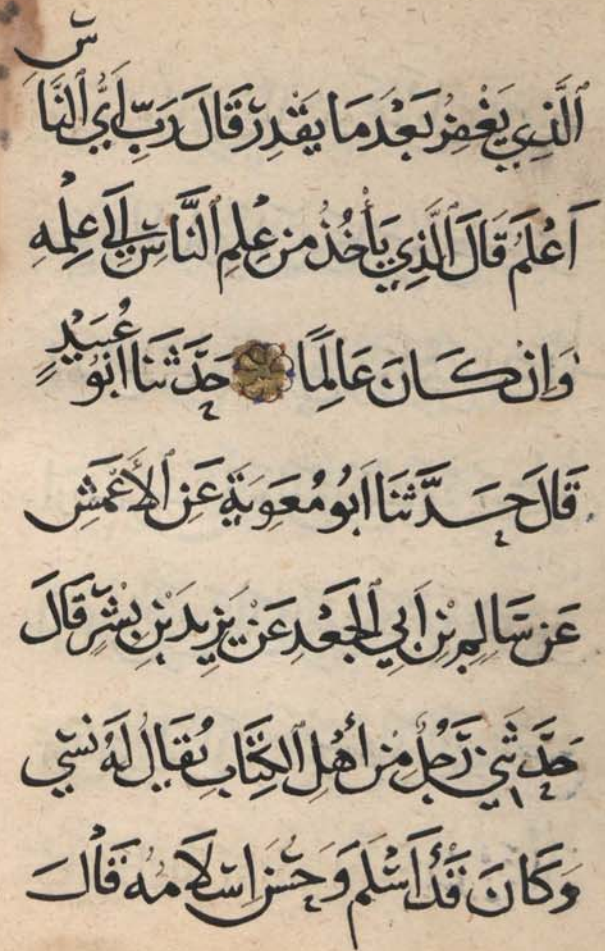 ٱلَّذِي يَغْفِرُ بَعْدَ مَا يَقْدِرُ قَالَ رَبِّ أَيُّ ٱلنَّاسِ
أَعْلَمُ قَالَ ٱلَّذِي يَأْخُذُ مِنْ عِلْمِ ٱلنَّاسِ إِلَى عِلْمِهِ
وَإِنْ كَانَ عَالِمًا حَدَّثَنَا أَبُو عُبَيْدٍ
قَالَ حَدَّثَنَا أَبُو مُعَوِيَةَ عَنِ ٱلْأَعْمَشِ
عَنْ سَالِمِ بْنِ أَبِي ٱلْجَعْدِ عَنْ يَزِيدَ بْنِ بِشْرٍ قَالَ
حَدَّثَنِي رَجُلٌ مِنْ أَهْلِ ٱلْكِتَابِ يُقَالُ لَهُ
وَكَانَ قَدْ أَسْلَمَ وَحَسُنَ إِسْلَامُهُ قَالَ